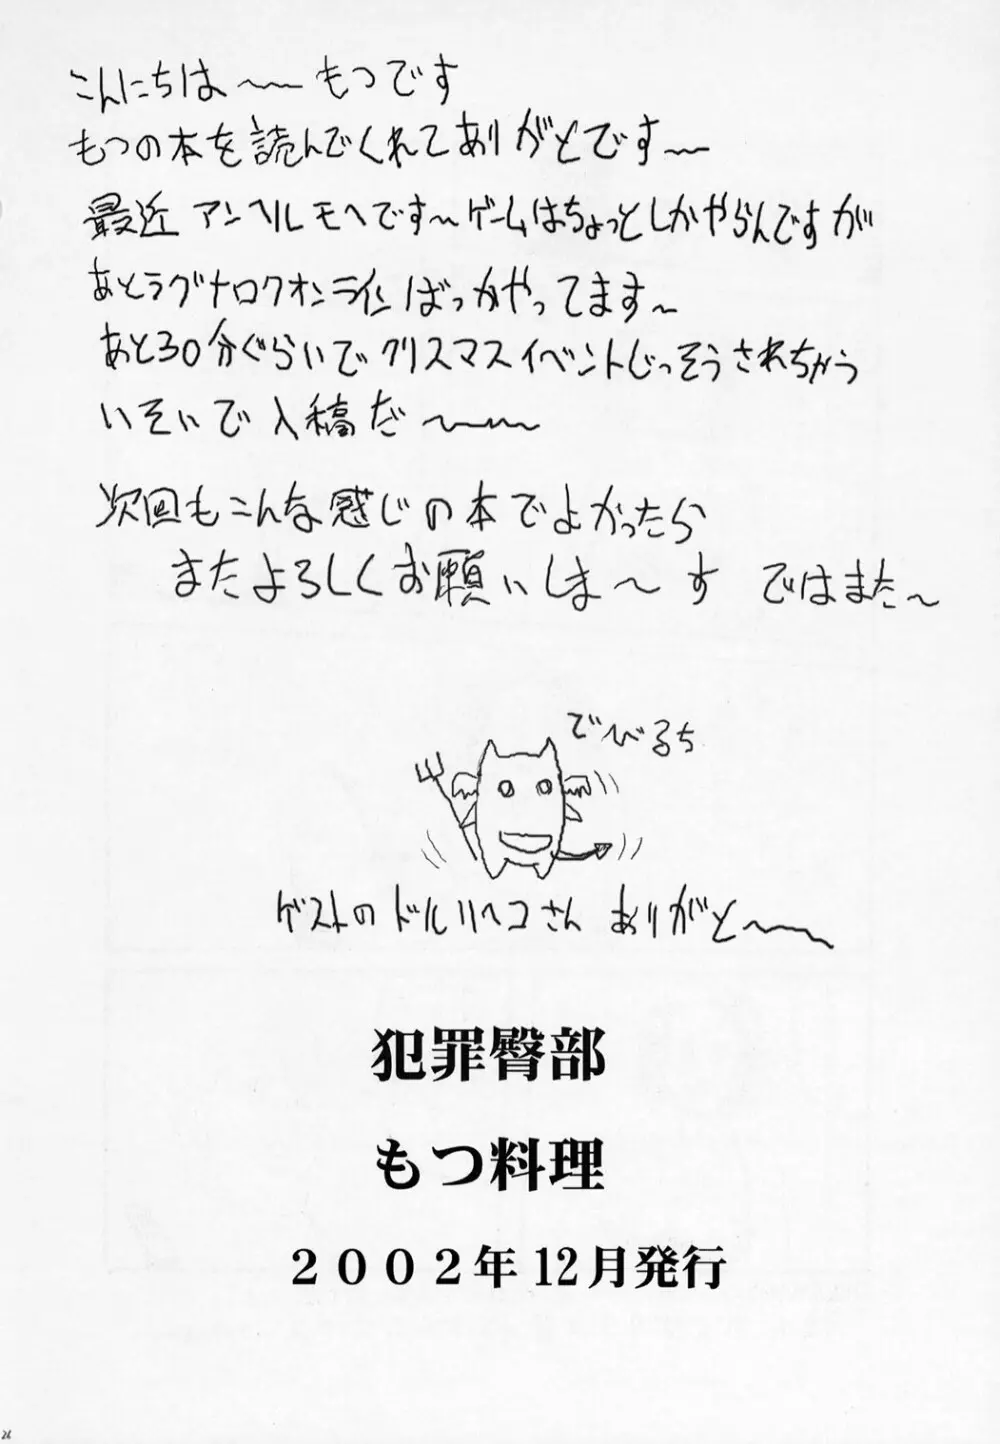 こんにちは〜〜もつです
もつの本を読んでくれてありがとです〜
最近アンヘルモヘです〜ゲームはちょっとしかやらんですが
あとラグナロクオンラインばっかやってます〜
あと30分ぐらいでクリスマスイベントじっそうされちゃう
いそいで入稿だ〜〜〜
次回もこんな感じの本でよかったら
またよろしくお願いしま〜す ではまた〜
でびるち
ゲストのドルリヘコさん ありがと〜〜
犯罪臀部
もつ料理
2002年12月発行
26